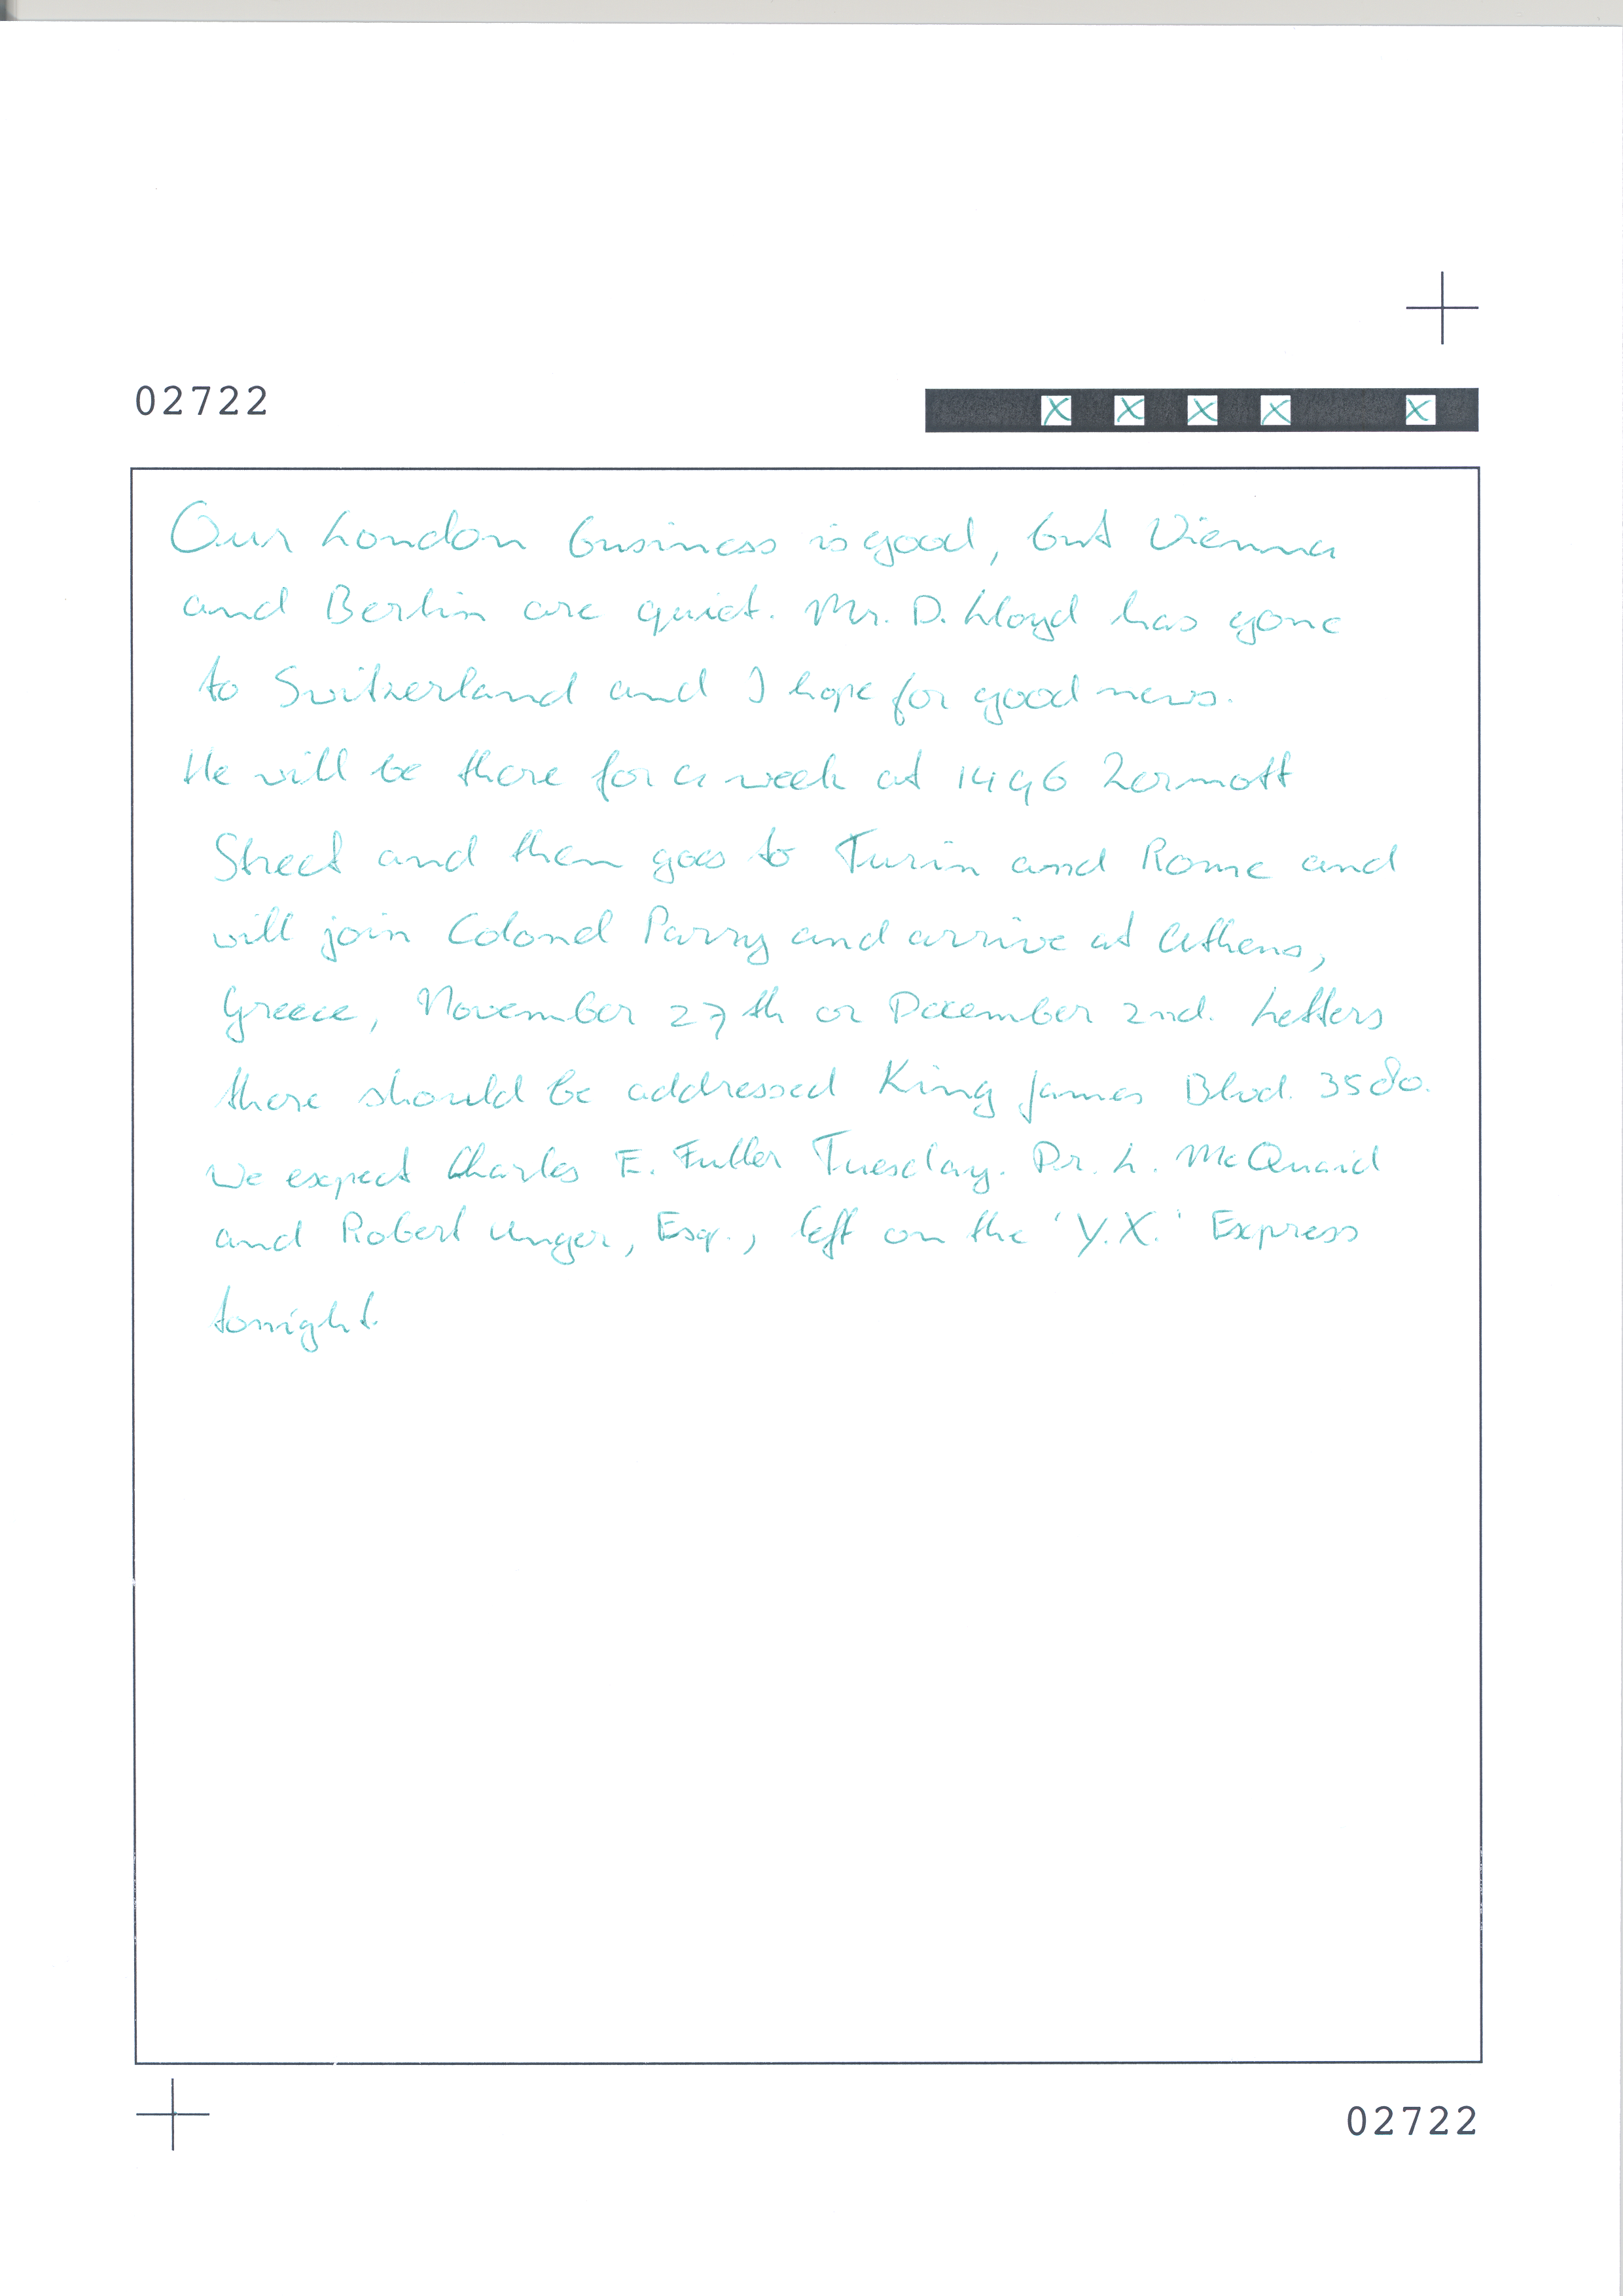 02722
Our London business is good, but Vienna
and Berlin are quiet. Mr. D. Lloyd has gone
to Switzerland and I hope for good news.
He will be there for a week at 1496 Zermott
Street and then goes to Turin and Rome and
will join Colonel Parry and arrive at Athens,
Greece, November 27th or December 2nd. Letters
there should be addressed King James Blvd. 3580.
We expect Charles E. Fuller Tuesday. Dr. L. McQuaid
and Robert Unger, Esq., left on the 'Y.X.' Express
tonight.
02722